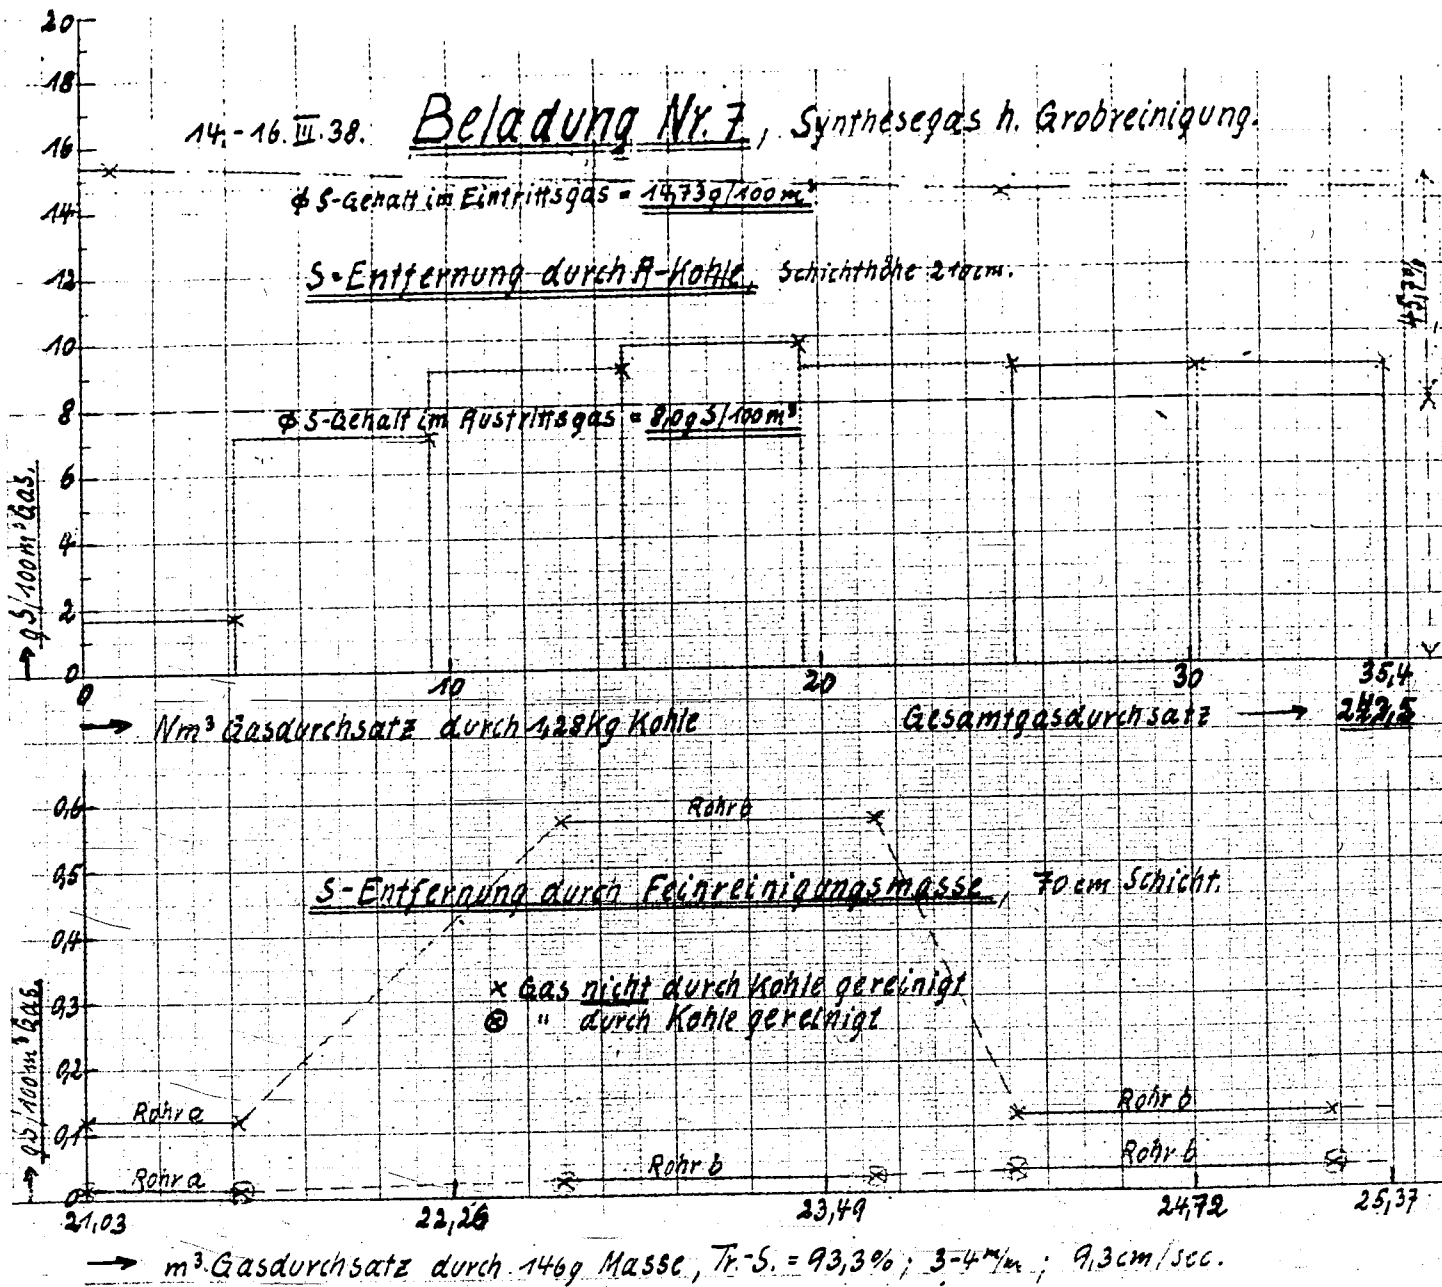 20
18
14.-16.III.38. Beladung Nr. 7, Synthesegas h. Grobreinigung.
16
ϕ S-Gehalt im Eintrittsgas = 14,73g/100 m³
14
S-Entfernung durch A-Kohle, Schichthöhe 210cm.
12
45,7%
10
8
ϕ S-Gehalt im Austrittsgas = 8,0gS/100m³
6
4
2
0
→ gS/100m³ Gas.
0 10 20 30 35,4
→ Nm³ Gasdurchsatz durch 1,28Kg Kohle Gesamtgasdurchsatz → 242,5
0,6
Rohr b
0,5
S-Entfernung durch Feinreinigungsmasse, 70 cm Schicht.
0,4
x Gas nicht durch Kohle gereinigt
0,3
⊗ " durch Kohle gereinigt
0,2
Rohr a Rohr b
0,1
Rohr a Rohr b Rohr b
0
→ gS/100m³ Gas.
21,03 22,26 23,49 24,72 25,37
→ m³ Gasdurchsatz durch 146g Masse, Tr.-S. = 93,3%; 3-4 m/m; 9,3cm/sec.